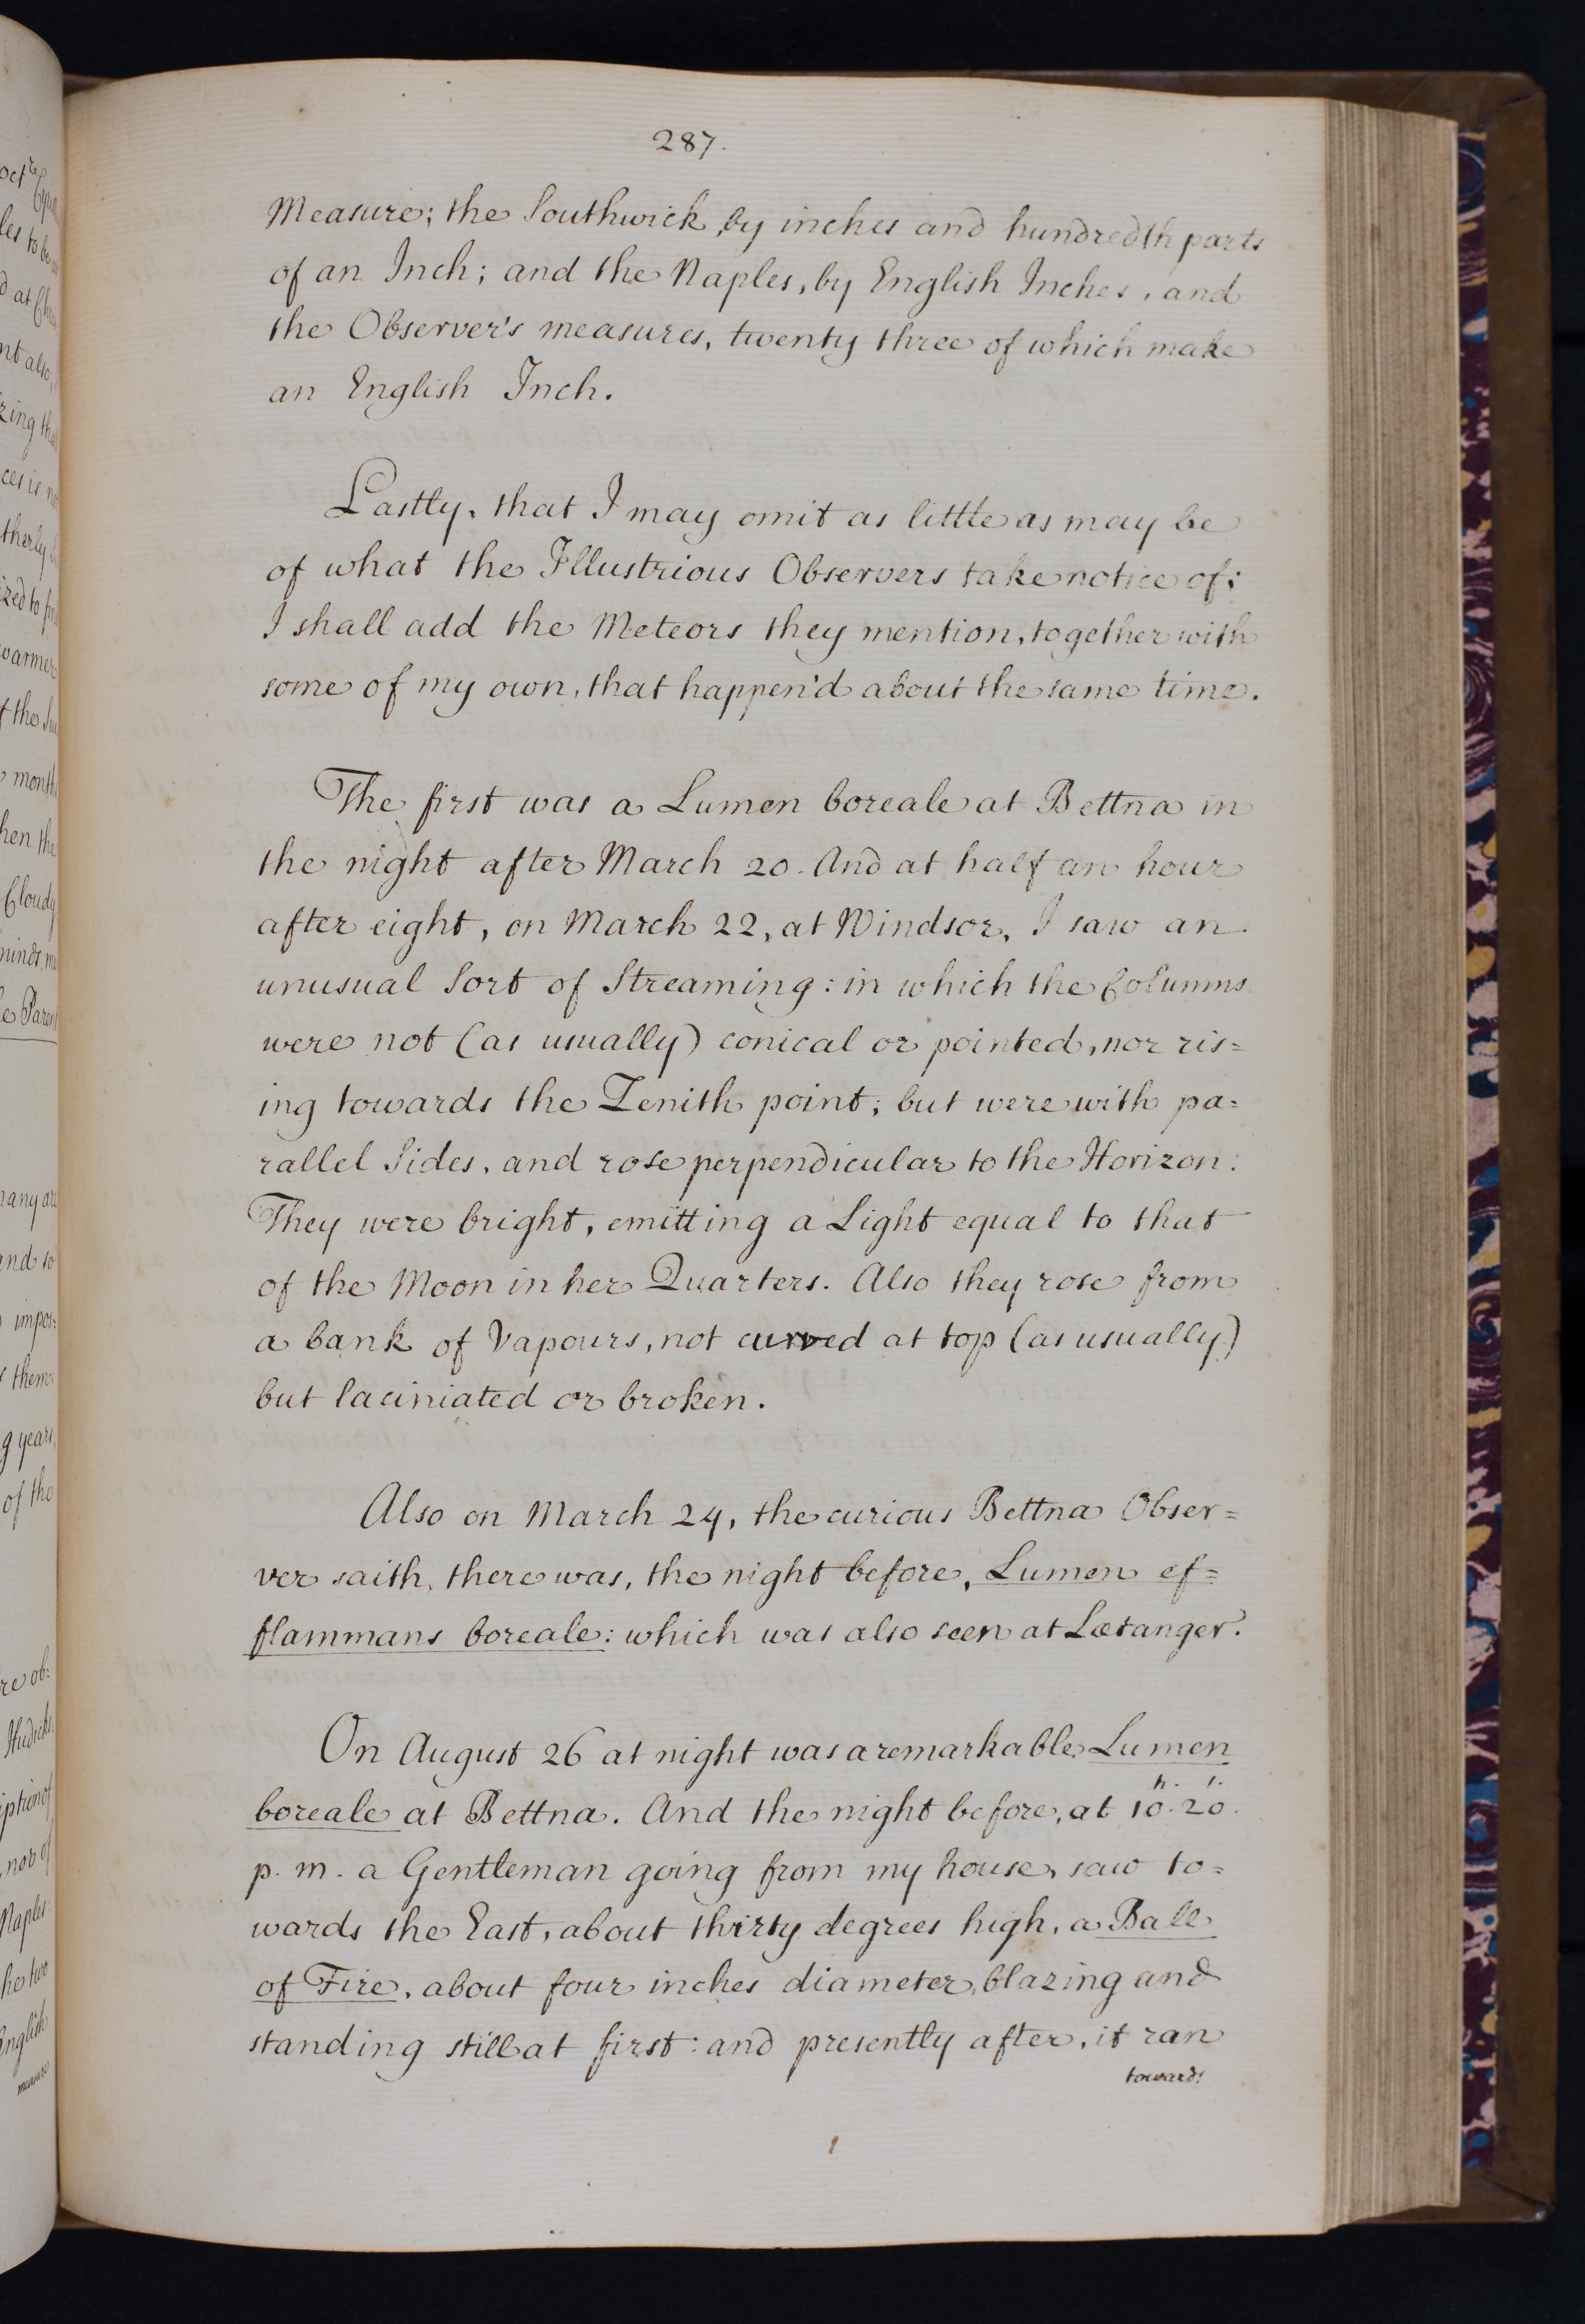 287.
Measure; the Southwick, by inches and hundredth parts
of an Inch; and the Naples, by English Inches, and
the Observer's measures, twenty three of which make
an English Inch.
Lastly, that I may omit as little as may be
of what the Illustrious Observers take notice of;
I shall add the Meteors they mention, together with
some of my own, that happen'd about the same time.
The first was a Lumen boreale at Bettna in
the night after March 20. And at half an hour
after eight, on March 22, at Windsor, I saw an
unusual Sort of Streaming: in which the Columns
were not (as usually) conical or pointed, nor ris=
ing towards the Zenith point; but were with pa=
rallel Sides, and rose perpendicular to the Horizon:
They were bright, emitting a Light equal to that
of the Moon in her Quarters. Also they rose from
a bank of Vapours, not curved at top (as usually)
but laciniated or broken.
Also on March 24, the curious Bettna Obser=
ver saith, there was, the night before, Lumen ef=
flammans boreale: which was also seen at Lætanger.
On August 26 at night was a remarkable Lumen
boreale at Bettna. And the night before, at 10.h 20.'
p. m. a Gentleman going from my house, saw to=
wards the East, about thirty degrees high, a Ball
of Fire, about four inches diameter, blazing and
standing still at first: and presently after, it ran
towards